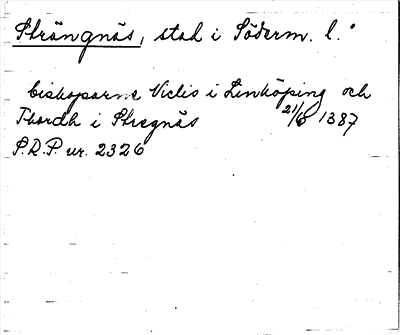 Strängnäs, stad i Söderm. l.
biskoparne Niclis i Linköping och
Thordh i Stregnäs 21/6 1387
S.R.P. nr. 2326